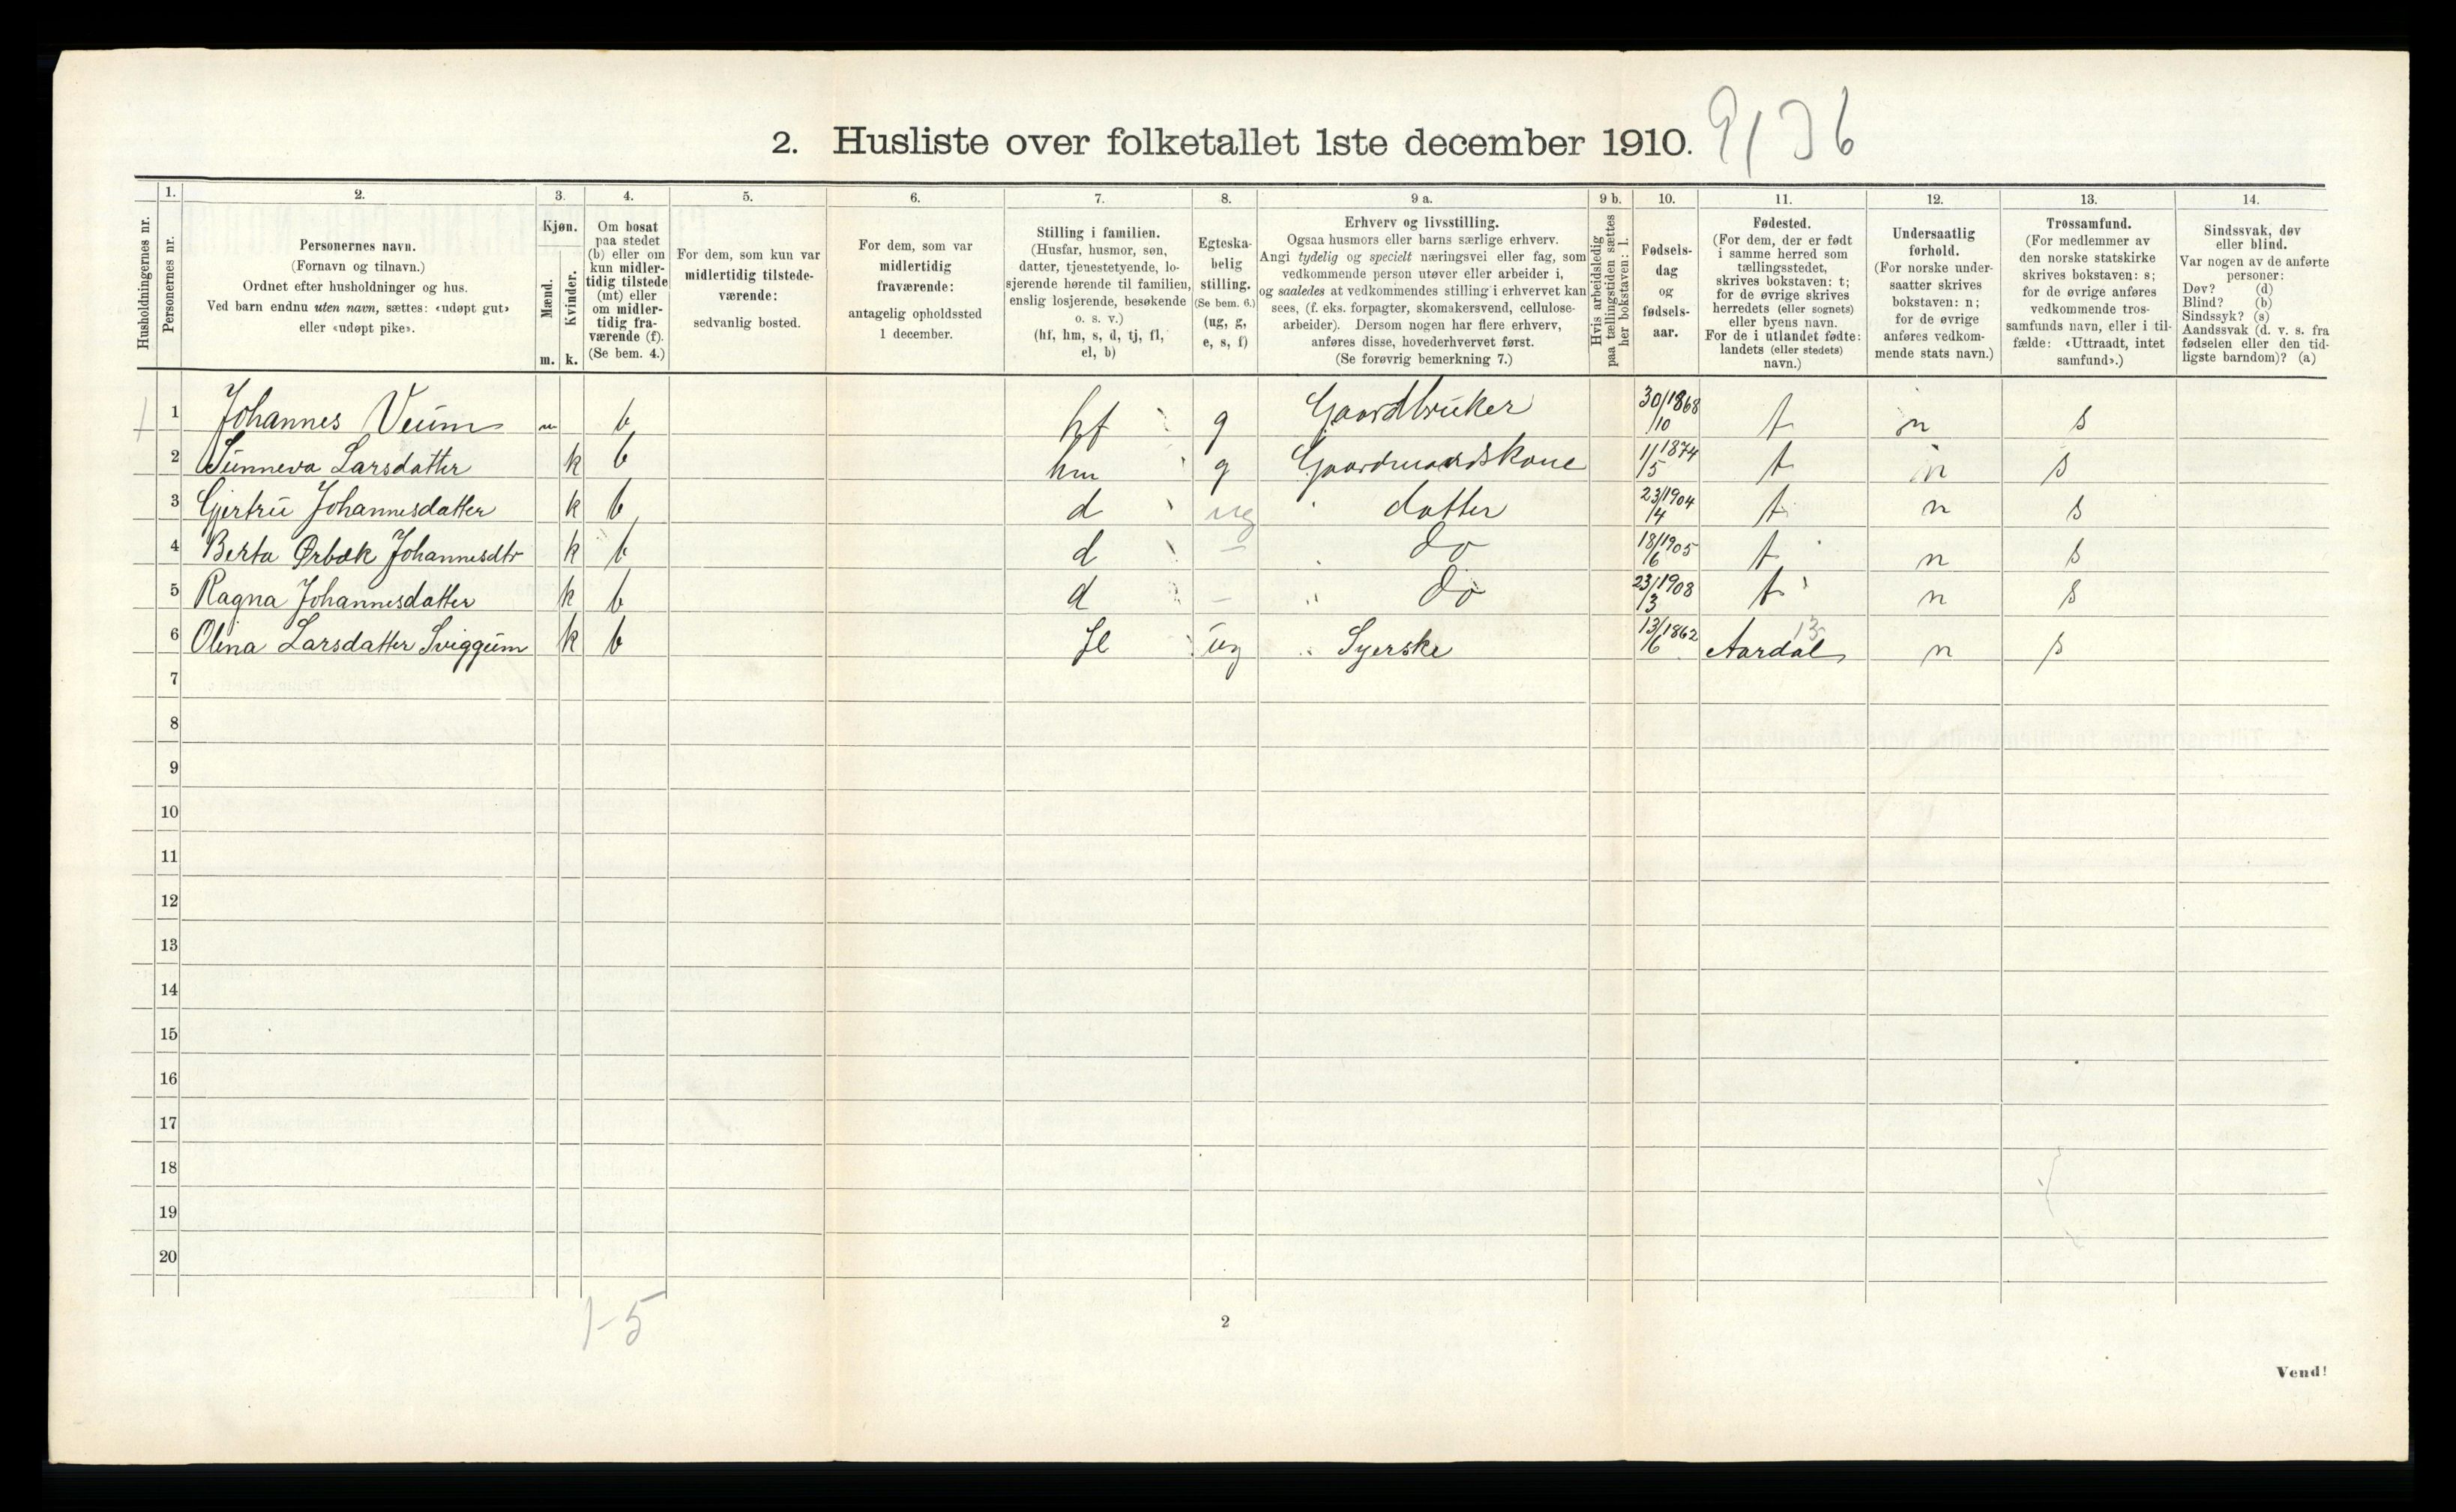 2. Husliste over folketallet 1ste december 1910. 9/36
Husholdningernes nr.
1. Personernes nr.
2. Personernes navn.
(Fornavn og tilnavn.)
Ordnet efter husholdninger og hus.
Ved barn endnu uten navn, sættes: «udøpt gut»
eller «udøpt pike».
3. Kjøn.
Mænd. Kvinder.
m. k.
4. Om bosat
paa stedet
(b) eller om
kun midler-
tidig tilstede
(mt) eller
om midler-
tidig fra-
værende (f).
(Se bem. 4.)
5. For dem, som kun var
midlertidig tilstede-
værende:
sedvanlig bosted.
6. For dem, som var
midlertidig
fraværende:
antagelig opholdssted
1 december.
7. Stilling i familien.
(Husfar, husmor, søn,
datter, tjenestetyende, lo-
sjerende hørende til familien,
enslig losjerende, besøkende
o. s. v.)
(hf, hm, s, d, tj, fl,
el, b)
8. Egteska-
belig
stilling.
(Se bem. 6.)
(ug, g,
e, s, f)
9 a. Erhverv og livsstilling.
Ogsaa husmors eller barns særlige erhverv.
Angi tydelig og specielt næringsvei eller fag, som
vedkommende person utøver eller arbeider i,
og saaledes at vedkommendes stilling i erhvervet kan
sees, (f. eks. forpagter, skomakersvend, cellulose-
arbeider). Dersom nogen har flere erhverv,
anføres disse, hovederhvervet først.
(Se forøvrig bemerkning 7.)
9 b. Hvis arbeidsledig
paa tællingstiden sættes
her bokstaven: l.
10. Fødsels-
dag
og
fødsels-
aar.
11. Fødested.
(For dem, der er født
i samme herred som
tællingsstedet,
skrives bokstaven: t;
for de øvrige skrives
herredets (eller sognets)
eller byens navn.
For de i utlandet fødte:
landets (eller stedets)
navn.)
12. Undersaatlig
forhold.
(For norske under-
saatter skrives
bokstaven: n;
for de øvrige
anføres vedkom-
mende stats navn.)
13. Trossamfund.
(For medlemmer av
den norske statskirke
skrives bokstaven: s;
for de øvrige anføres
vedkommende tros-
samfunds navn, eller i til-
fælde: «Uttraadt, intet
samfund».)
14. Sindssvak, døv
eller blind.
Var nogen av de anførte
personer:
Døv? (d)
Blind? (b)
Sindssyk? (s)
Aandssvak (d. v. s. fra
fødselen eller den tid-
ligste barndom)? (a)
1 1 Johannes Veum m b hf g Gaardbruker 30/10 1868 t n s
2 Sünneva Larsdatter k b hm g Gaardmandskone 11/5 1874 t n s
3 Gjertrü Johannesdatter k b d ug datter 23/4 1904 t n s
4 Berta Ørbæk Johannesdtr k b d – do 18/6 1905 t n s
5 Ragna Johannesdatter k b d – do 23/3 1908 t n s
6 Olina Larsdatter Sviggüm k b fl ug Syerske 13/6 1862 Aardal 13 n s
7
8
9
10
11
12
13
14
15
16
17
18
19
20
1-5
2
Vend!